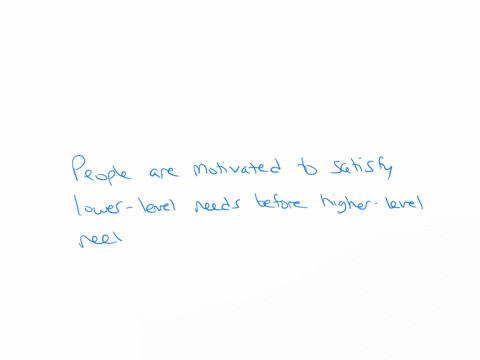 People are motivated to satisfy
lower-level needs before higher-level
neel